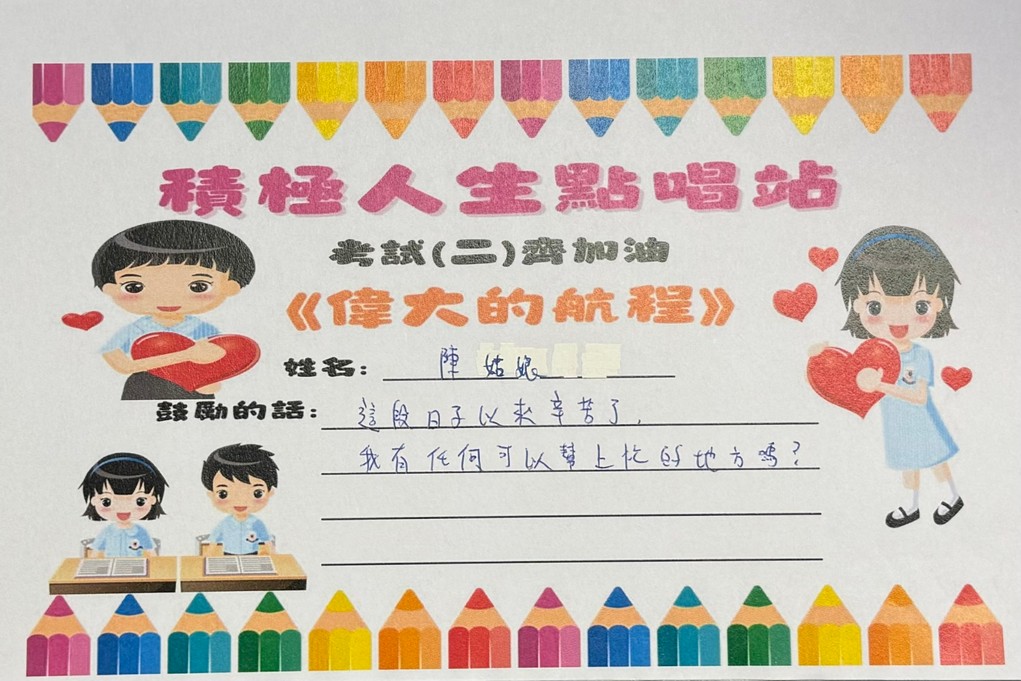 積極人生點唱站
考試(二)齊加油
《偉大的航程》
姓名: 陳姑娘
鼓勵的話: 這段日子以來辛苦了,
我有任何可以幫上忙的地方嗎?